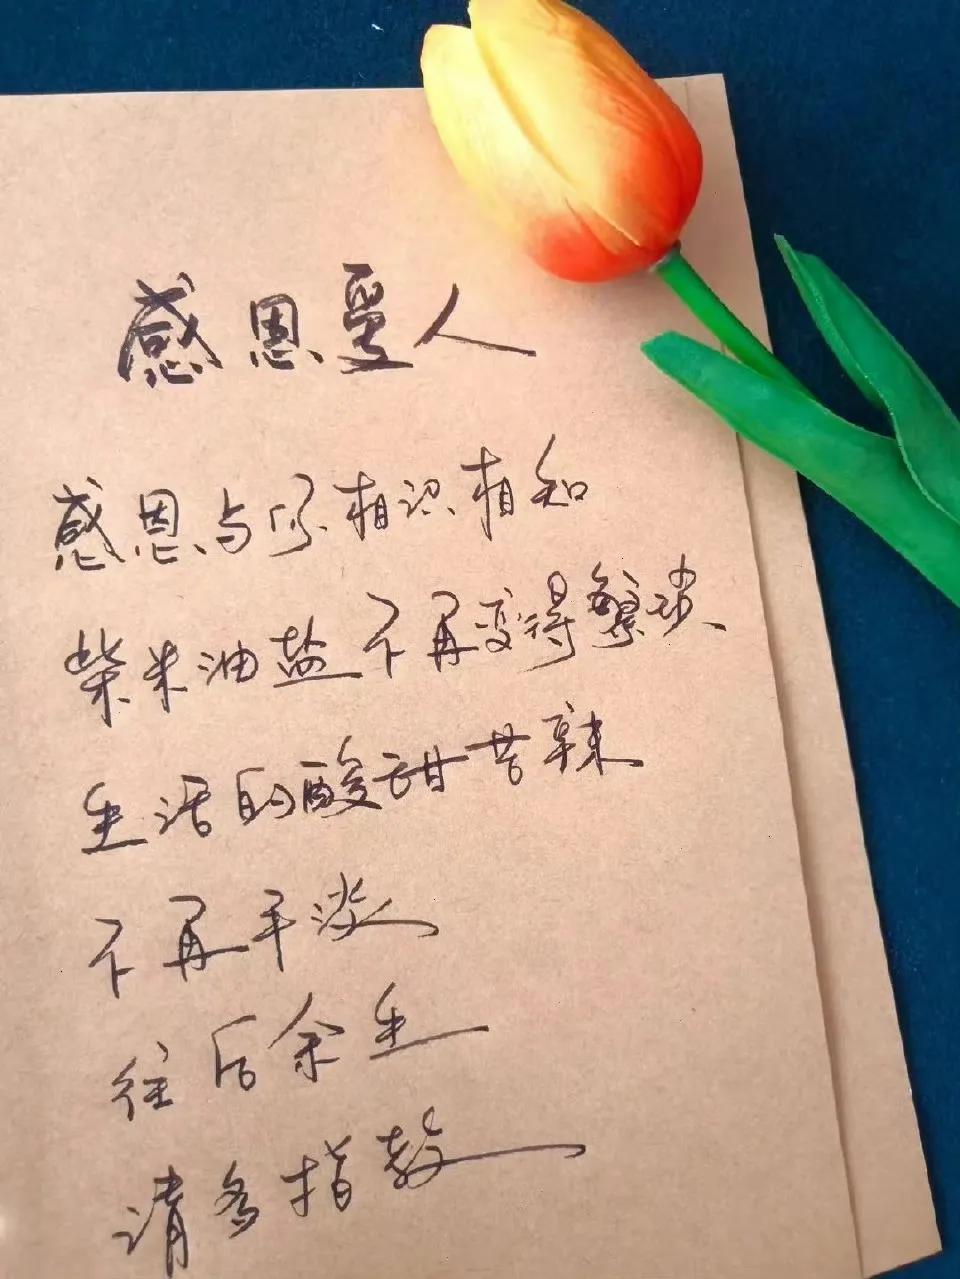 感恩爱人
感恩与你相识相知
柴米油盐不再变得繁琐
生活的酸甜苦辣
不再平淡
往后余生
请多指教